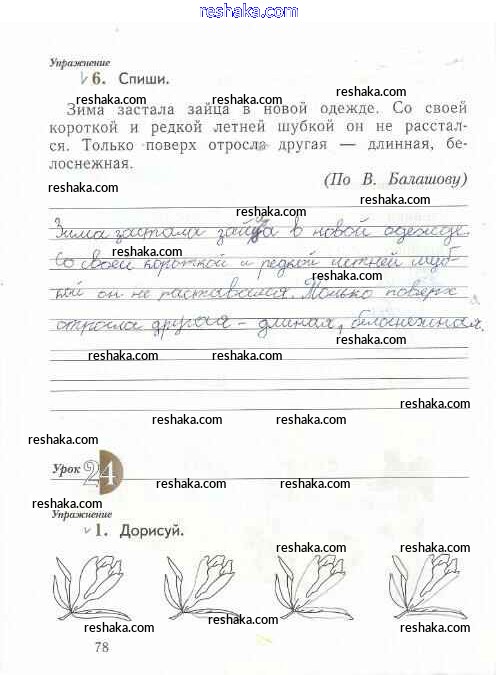 reshaka.com
Упражнение
6. Спиши.
reshaka.com
reshaka.com
Зима застала зайца в новой одежде. Со своей
короткой и редкой летней шубкой он не расстал-
ся. Только поверх отросла другая — длинная, бе-
лоснежная.
reshaka.com
reshaka.com
(По В. Балашову)
reshaka.com
reshaka.com
Зима застала зайца в новой одежде.
reshaka.com
Со своей короткой и редкой летней шуб-
reshaka.com
кой он не расставался. Только поверх
reshaka.com
отросла другая - длиная, белоснежная.
reshaka.com
reshaka.com
reshaka.com
reshaka.com
reshaka.com
reshaka.com
Урок 24
reshaka.com
reshaka.com
reshaka.com
Упражнение
1. Дорисуй.
reshaka.com
reshaka.com
reshaka.com
reshaka.com
reshaka.com
reshaka.com
reshaka.com
78